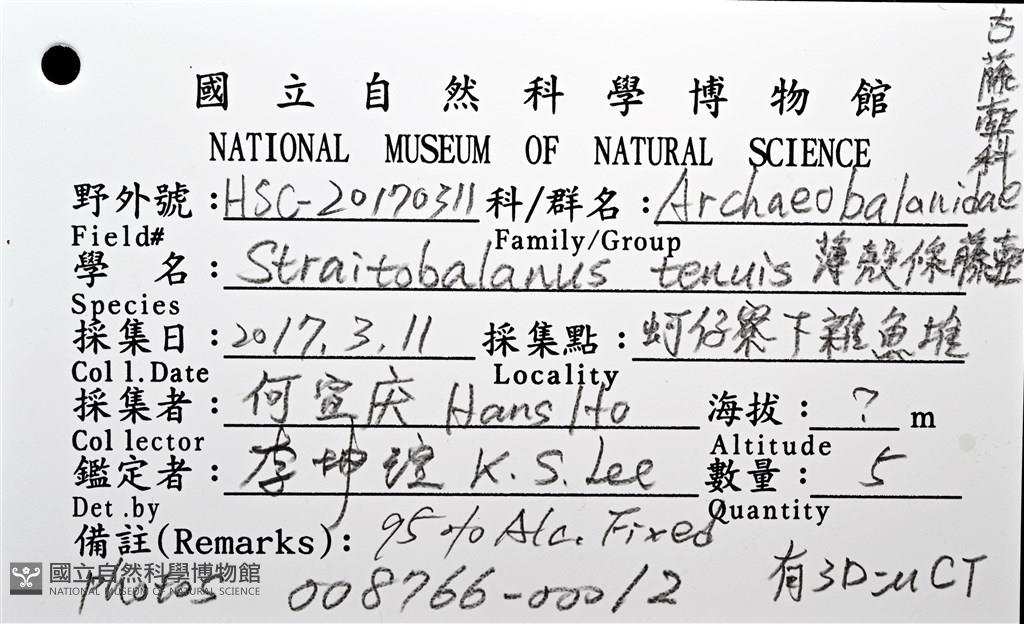 古藤壺科
國立自然科學博物館
NATIONAL MUSEUM OF NATURAL SCIENCE
野外號:HSC-20170311 科/群名:Archaeobalanidae
Field# Family/Group
學 名:Straitobalanus tenuis 薄殼條藤壺
Species
採集日:2017.3.11 採集點:蚵仔寮下雜魚堆
Coll.Date Locality
採集者:何宣庆 Hans Ho 海拔:? m
Collector Altitude
鑑定者:李坤瑄 K.S.Lee 數量:5
Det.by Quantity
備註(Remarks):95% Alc. Fixed
Photos 008766-00012 有3D-μCT
國立自然科學博物館
NATIONAL MUSEUM OF NATURAL SCIENCE